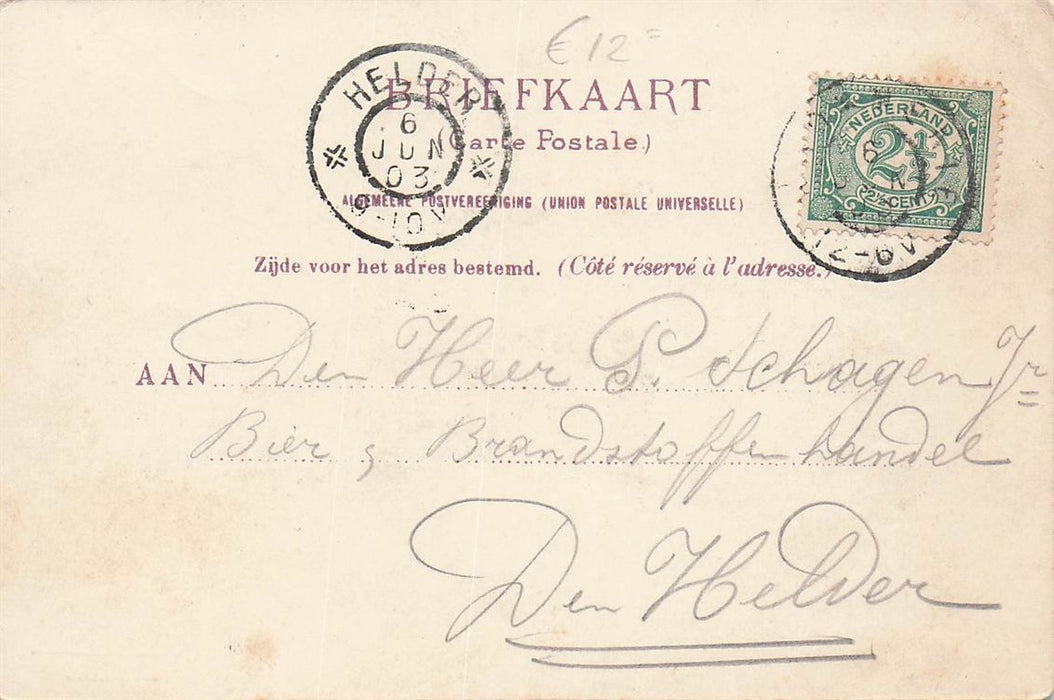 € 12=
BRIEFKAART
(Carte Postale.)
ALGEMEENE POSTVEREENIGING (UNION POSTALE UNIVERSELLE)
Zijde voor het adres bestemd. (Côté réservé à l'adresse.)
HELDER
6
JUN
03
9-10V
NEDERLAND
2½
2½ CENT
12-6V
AAN Den Heer P. Schagen Jr
Bier & Brandstoffenhandel
Den Helder